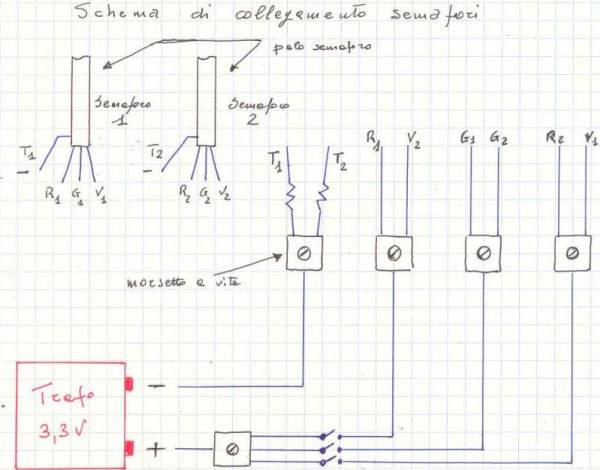 Schema di collegamento semafori
palo semaforo
Semaforo 1
Semaforo 2
T1
-
R1 G1 V1
T2
-
R2 G2 V2
T1 T2
R1 V2
G1 G2
R2 V1
morsetto a vite
Trafo
3,3 V
-
+